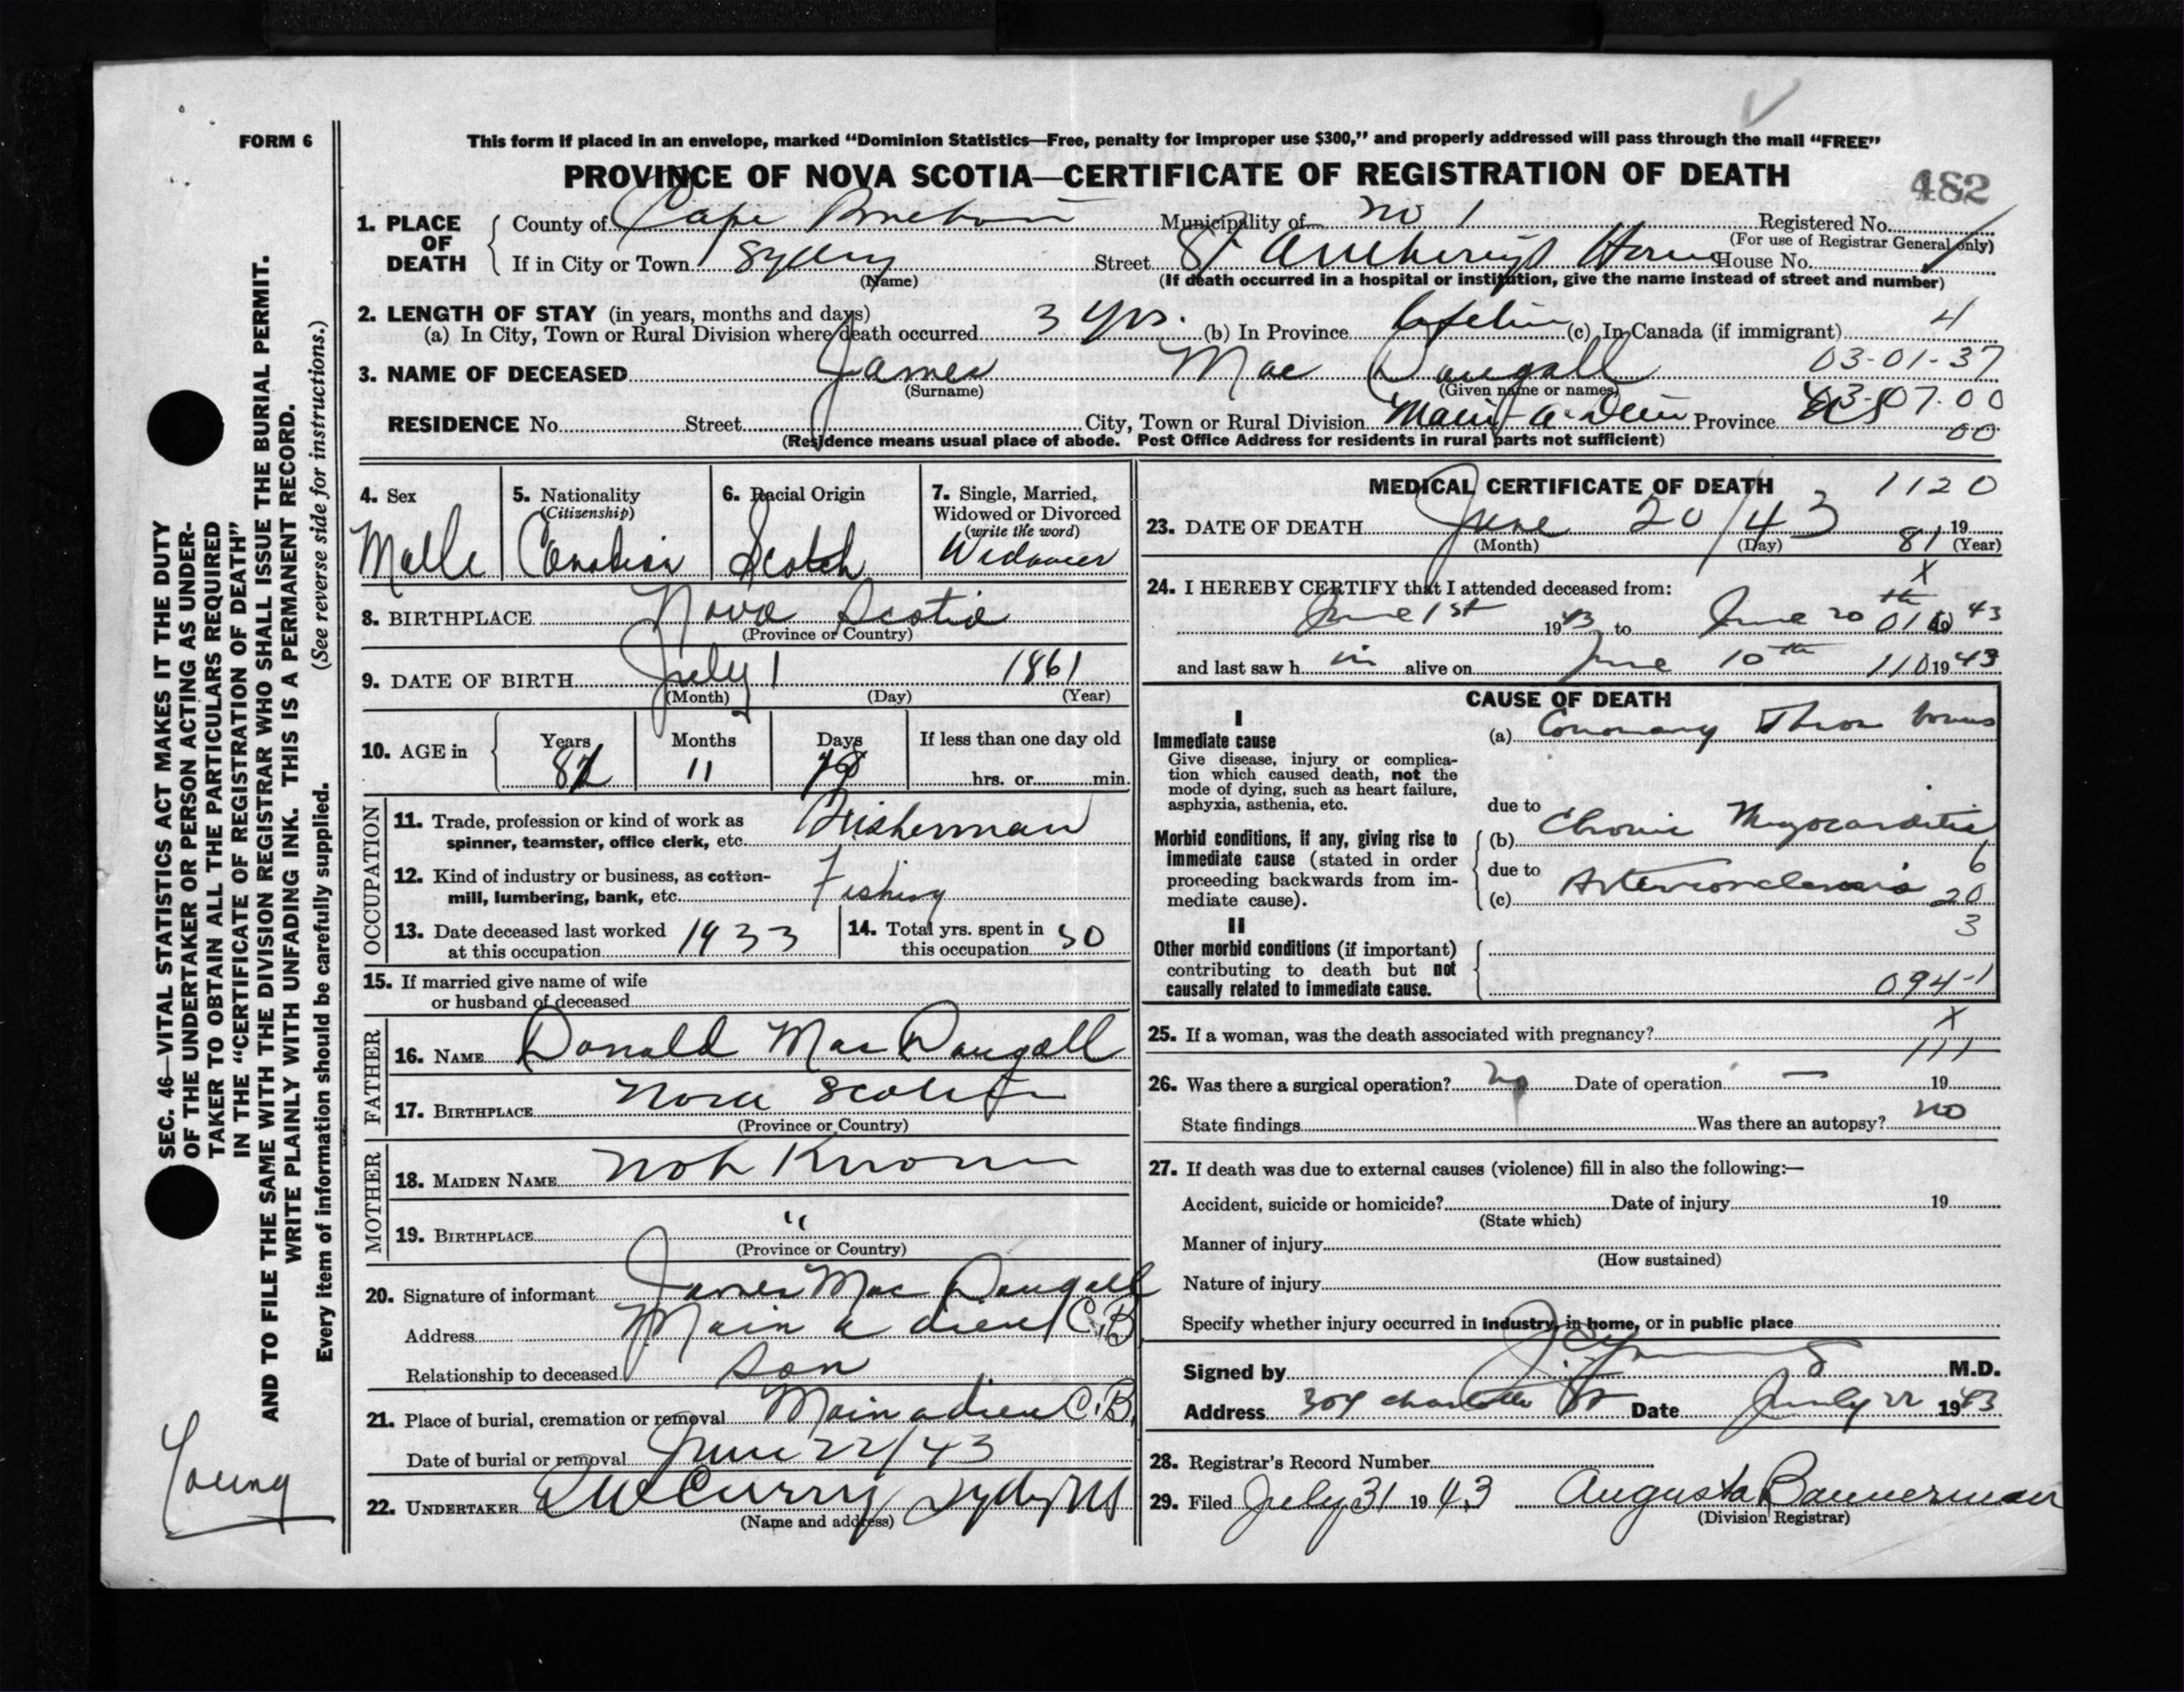 FORM 6
This form if placed in an envelope, marked “Dominion Statistics—Free, penalty for improper use $300,” and properly addressed will pass through the mail “FREE”
PROVINCE OF NOVA SCOTIA—CERTIFICATE OF REGISTRATION OF DEATH
482
1. PLACE OF DEATH
County of Cape Breton Municipality of No 1 Registered No.
(For use of Registrar General only)
If in City or Town Sydney Street St Anthony's Home House No.
(Name) (If death occurred in a hospital or institution, give the name instead of street and number)
2. LENGTH OF STAY (in years, months and days)
(a) In City, Town or Rural Division where death occurred 3 yrs. (b) In Province Lifetime (c) In Canada (if immigrant) 4
3. NAME OF DECEASED James Mac Dougall 03-01-37
(Surname) (Given name or names)
RESIDENCE No. Street City, Town or Rural Division Main-a-Dieu Province 03-07-00
00
(Residence means usual place of abode. Post Office Address for residents in rural parts not sufficient)
4. Sex 5. Nationality (Citizenship) 6. Racial Origin 7. Single, Married, Widowed or Divorced (write the word)
Malle Canadian Scotch Widower
8. BIRTHPLACE Nova Scotia
(Province or Country)
9. DATE OF BIRTH July 1 1861
(Month) (Day) (Year)
10. AGE in Years Months Days If less than one day old
11 hrs. or min.
OCCUPATION
11. Trade, profession or kind of work as spinner, teamster, office clerk, etc. Fisherman
12. Kind of industry or business, as cotton-mill, lumbering, bank, etc. Fishing
13. Date deceased last worked at this occupation 1933 14. Total yrs. spent in this occupation 50
15. If married give name of wife or husband of deceased
FATHER
16. NAME Donald MacDougall
17. BIRTHPLACE Nova Scotia
(Province or Country)
MOTHER
18. MAIDEN NAME Not Known
19. BIRTHPLACE "
(Province or Country)
20. Signature of informant James Mac Dougall
Address Main a dieu C.B.
Relationship to deceased Son
21. Place of burial, cremation or removal Main a dieu C.B.
Date of burial or removal June 22/43
22. UNDERTAKER McCurry Sydney NS
(Name and address)
MEDICAL CERTIFICATE OF DEATH 1120
23. DATE OF DEATH June 20/43 19
(Month) (Day) 81 (Year)
24. I HEREBY CERTIFY that I attended deceased from: X
June 1st 1943 to June 20th 010 43
and last saw h im alive on June 10th 110 1943
CAUSE OF DEATH
I
Immediate cause
Give disease, injury or complication which caused death, not the mode of dying, such as heart failure, asphyxia, asthenia, etc.
(a) Coronary Thrombus
due to
Morbid conditions, if any, giving rise to immediate cause (stated in order proceeding backwards from immediate cause).
(b) Chronic Myocarditis
due to 6
(c) Arteriosclerosis 20
3
II
Other morbid conditions (if important) contributing to death but not causally related to immediate cause.
094-1
25. If a woman, was the death associated with pregnancy? X
111
26. Was there a surgical operation? no Date of operation — 19
State findings Was there an autopsy? no
27. If death was due to external causes (violence) fill in also the following:—
Accident, suicide or homicide? Date of injury 19
(State which)
Manner of injury
(How sustained)
Nature of injury
Specify whether injury occurred in industry, in home, or in public place
Signed by M.D.
Address 304 Charlotte St Date 22 1943
28. Registrar's Record Number
29. Filed July 31 1943 Augusta Bannerman
(Division Registrar)
SEC. 46—VITAL STATISTICS ACT MAKES IT THE DUTY
OF THE UNDERTAKER OR PERSON ACTING AS UNDER-
TAKER TO OBTAIN ALL THE PARTICULARS REQUIRED
IN THE “CERTIFICATE OF REGISTRATION OF DEATH”
AND TO FILE THE SAME WITH THE DIVISION REGISTRAR WHO SHALL ISSUE THE BURIAL PERMIT.
WRITE PLAINLY WITH UNFADING INK. THIS IS A PERMANENT RECORD.
Every item of information should be carefully supplied. (See reverse side for instructions.)
Young